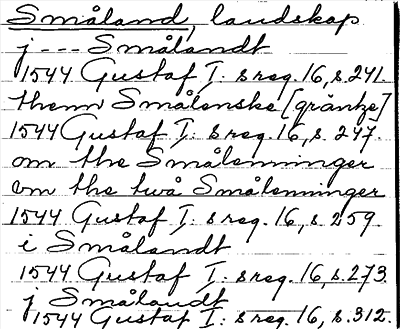 Småland, landskap
j --- Smålandt
1544 Gustaf I: s reg. 16, s. 241.
thenn Smålenske [gräntze]
1544 Gustaf I: s reg. 16, s. 247.
om the Smålenninger
vm the twå Smålenninger
1544 Gustaf I: s reg. 16, s. 259.
i Smålandt
1544 Gustaf I: s reg. 16, s. 273
j Smålandt
1544 Gustaf I: s reg. 16, s. 312.